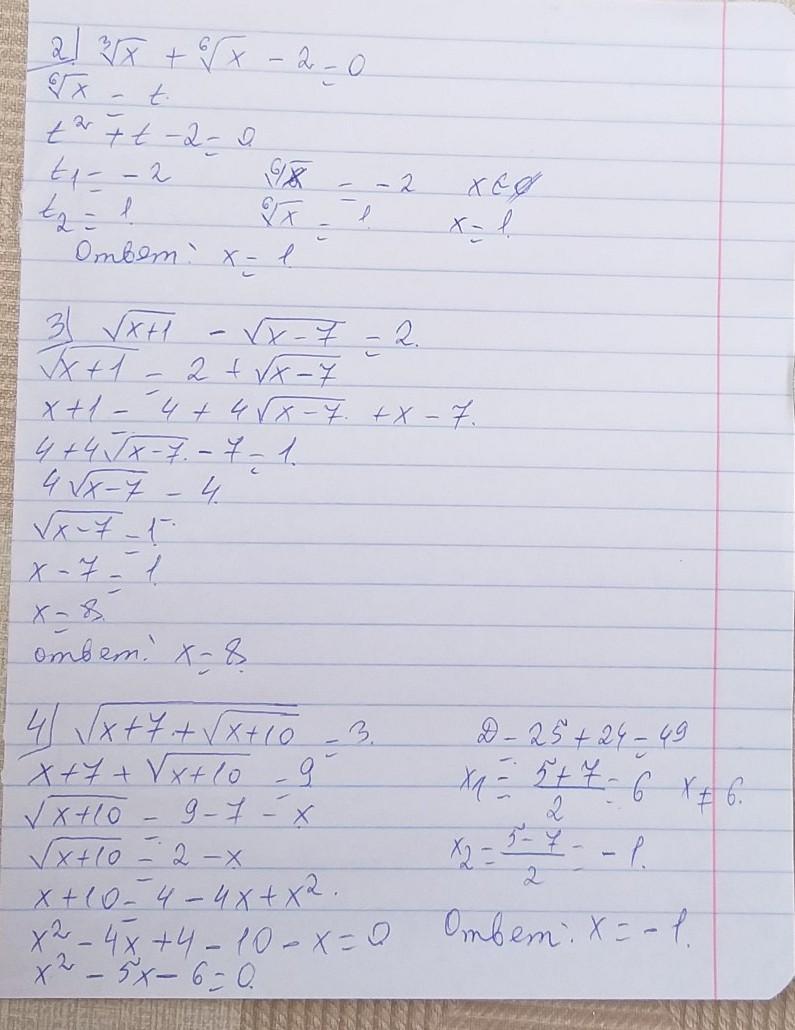 2) ∛x + ⁶√x − 2 = 0
⁶√x = t.
t² + t − 2 = 0
t₁ = −2 ⁶√x = −2 x ∈ ∅
t₂ = 1 ⁶√x = 1 x = 1.
Ответ: x = 1
3) √(x+1) − √(x−7) = 2.
√(x+1) = 2 + √(x−7)
x+1 = 4 + 4√(x−7) + x − 7.
4 + 4√(x−7) − 7 = 1.
4√(x−7) = 4
√(x−7) = 1
x − 7 = 1
x = 8.
Ответ: x = 8.
4) √(x+7+√(x+10)) = 3.
x+7 + √(x+10) = 9
√(x+10) = 9 − 7 − x
√(x+10) = 2 − x
x+10 = 4 − 4x + x².
x² − 4x + 4 − 10 − x = 0
x² − 5x − 6 = 0.
D = 25 + 24 = 49
x₁ = (5+7)/2 = 6 x ≠ 6.
x₂ = (5−7)/2 = −1.
Ответ: x = −1.